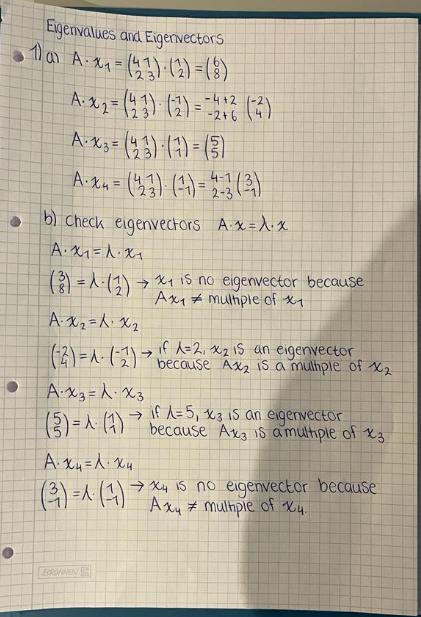 Eigenvalues and Eigenvectors
1) a) A · x₁ = (4 1 / 2 3) · (1 / 2) = (6 / 8)
A · x₂ = (4 1 / 2 3) · (-1 / 2) = -4+2 / -2+6 (-2 / 4)
A · x₃ = (4 1 / 2 3) · (1 / 1) = (5 / 5)
A · x₄ = (4 1 / 2 3) · (1 / -1) = 4-1 / 2-3 (3 / -1)
b) Check eigenvectors A · x = λ · x
A · x₁ = λ · x₁
(3 / 8) = λ · (1 / 2) → x₁ is no eigenvector because
Ax₁ ≠ multiple of x₁
A · x₂ = λ · x₂
(-2 / 4) = λ · (-1 / 2) → if λ=2, x₂ is an eigenvector
because Ax₂ is a multiple of x₂
A · x₃ = λ · x₃
(5 / 5) = λ · (1 / 1) → if λ=5, x₃ is an eigenvector
because Ax₃ is a multiple of x₃
A · x₄ = λ · x₄
(3 / -1) = λ · (1 / -1) → x₄ is no eigenvector because
Ax₄ ≠ multiple of x₄.